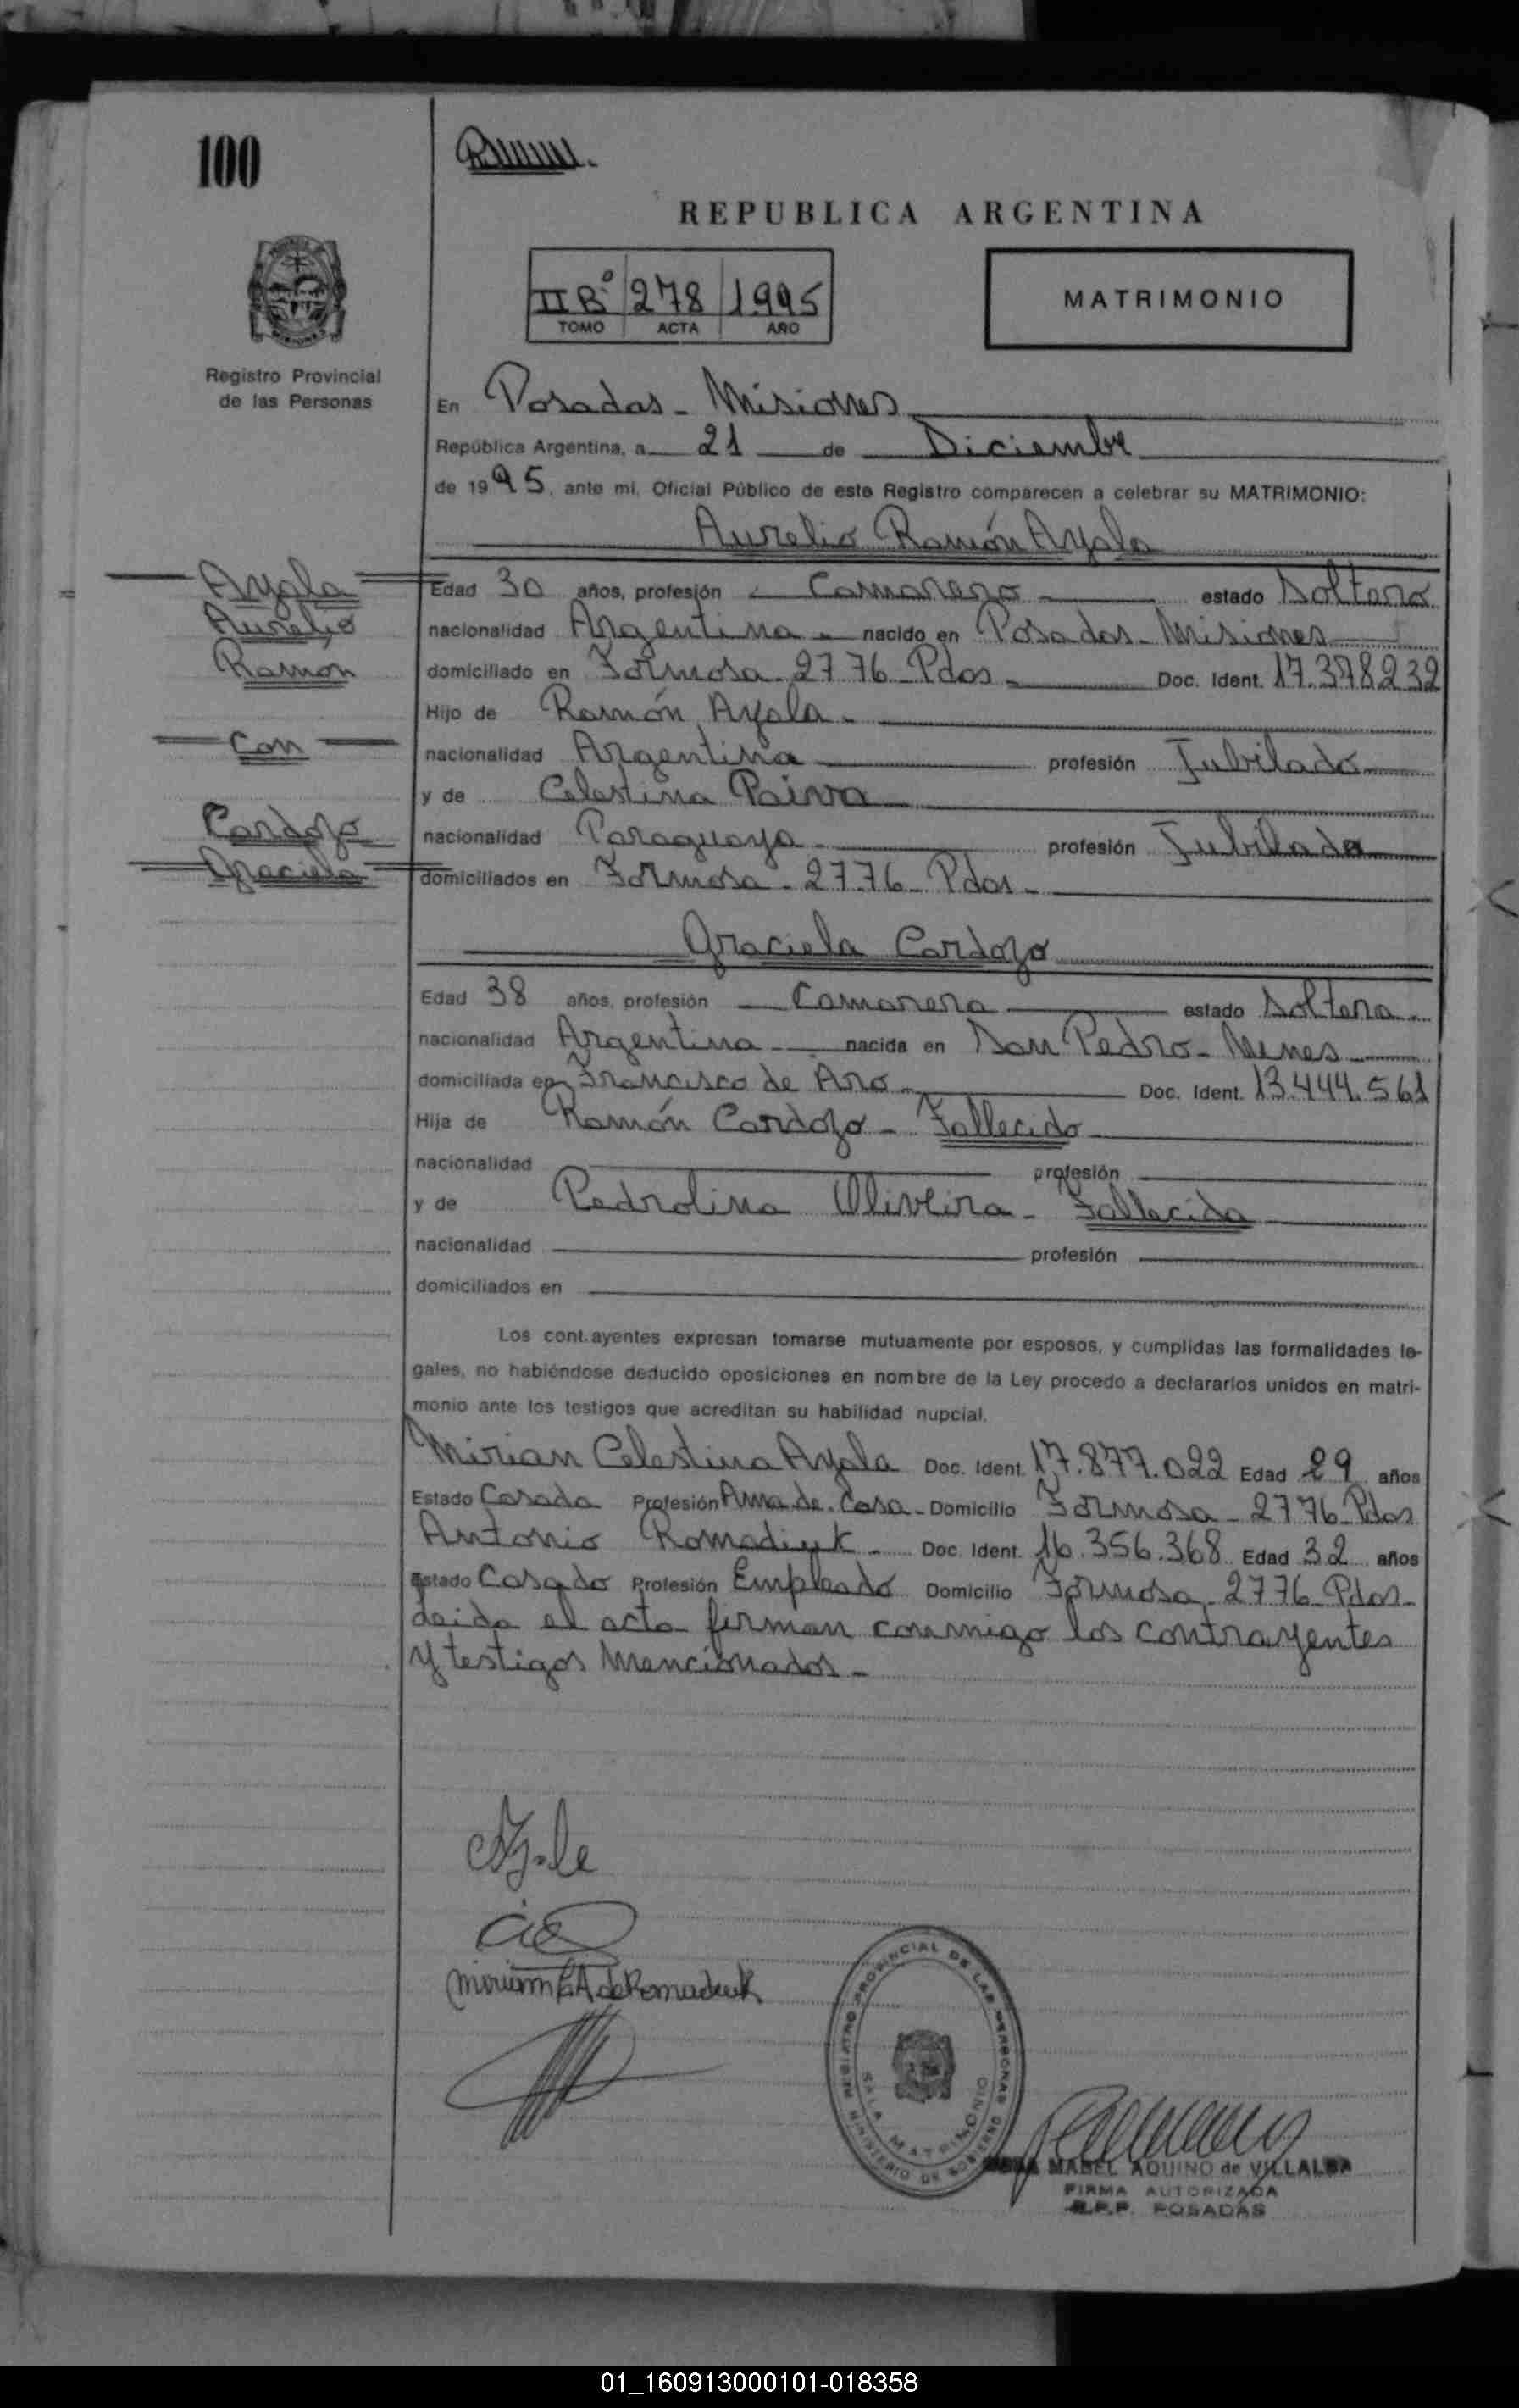 100
REPUBLICA ARGENTINA
IIBº 278 1995
TOMO ACTA AÑO
MATRIMONIO
Registro Provincial
de las Personas
En Posadas - Misiones
República Argentina, a 21 de Diciembre
de 1995, ante mi, Oficial Público de este Registro comparecen a celebrar su MATRIMONIO:
Aurelio Ramón Ayala
Ayala
Aurelio
Ramón
Con
Cardozo
Graciela
Edad 30 años, profesión - Camarero - estado Soltero
nacionalidad Argentina - nacido en Posadas - Misiones
domiciliado en Formosa 2776 - Pdas - Doc. Ident. 17.378232
Hijo de Ramón Ayala -
nacionalidad Argentina profesión Jubilado
y de Celestina Paiva
nacionalidad Paraguaya profesión Jubilada
domiciliados en Formosa - 2776 - Pdas -
Graciela Cardozo
Edad 38 años, profesión - Camarera estado Soltera -
nacionalidad Argentina - nacida en San Pedro - Mnes
domiciliada en Francisco de Aro - Doc. Ident. 13.444.561
Hija de Ramón Cardozo - Fallecido
nacionalidad profesión
y de Pedrolina Oliveira - Fallecida
nacionalidad profesión
domiciliados en
Los cont.ayentes expresan tomarse mutuamente por esposos, y cumplidas las formalidades le-
gales, no habiéndose deducido oposiciones en nombre de la Ley procedo a declararlos unidos en matri-
monio ante los testigos que acreditan su habilidad nupcial.
Mirian Celestina Ayala Doc. Ident. 17.877.022 Edad 29 años
Estado Casada Profesión Ama de Casa - Domicilio Formosa - 2776 - Pdas
Antonio Romadiuk - Doc. Ident. 16.356.368 Edad 32 años
Estado Casado Profesión Empleado Domicilio Formosa - 2776 - Pdas -
Leida el acta firman conmigo los contrayentes
y testigos mencionados -
REGISTRO PROVINCIAL DE LAS PERSONAS
MINISTERIO DE GOBIERNO
SALA MATRIMONIO
MABEL AQUINO de VILLALBA
FIRMA AUTORIZADA
R.P.P. POSADAS
01_160913000101-018358